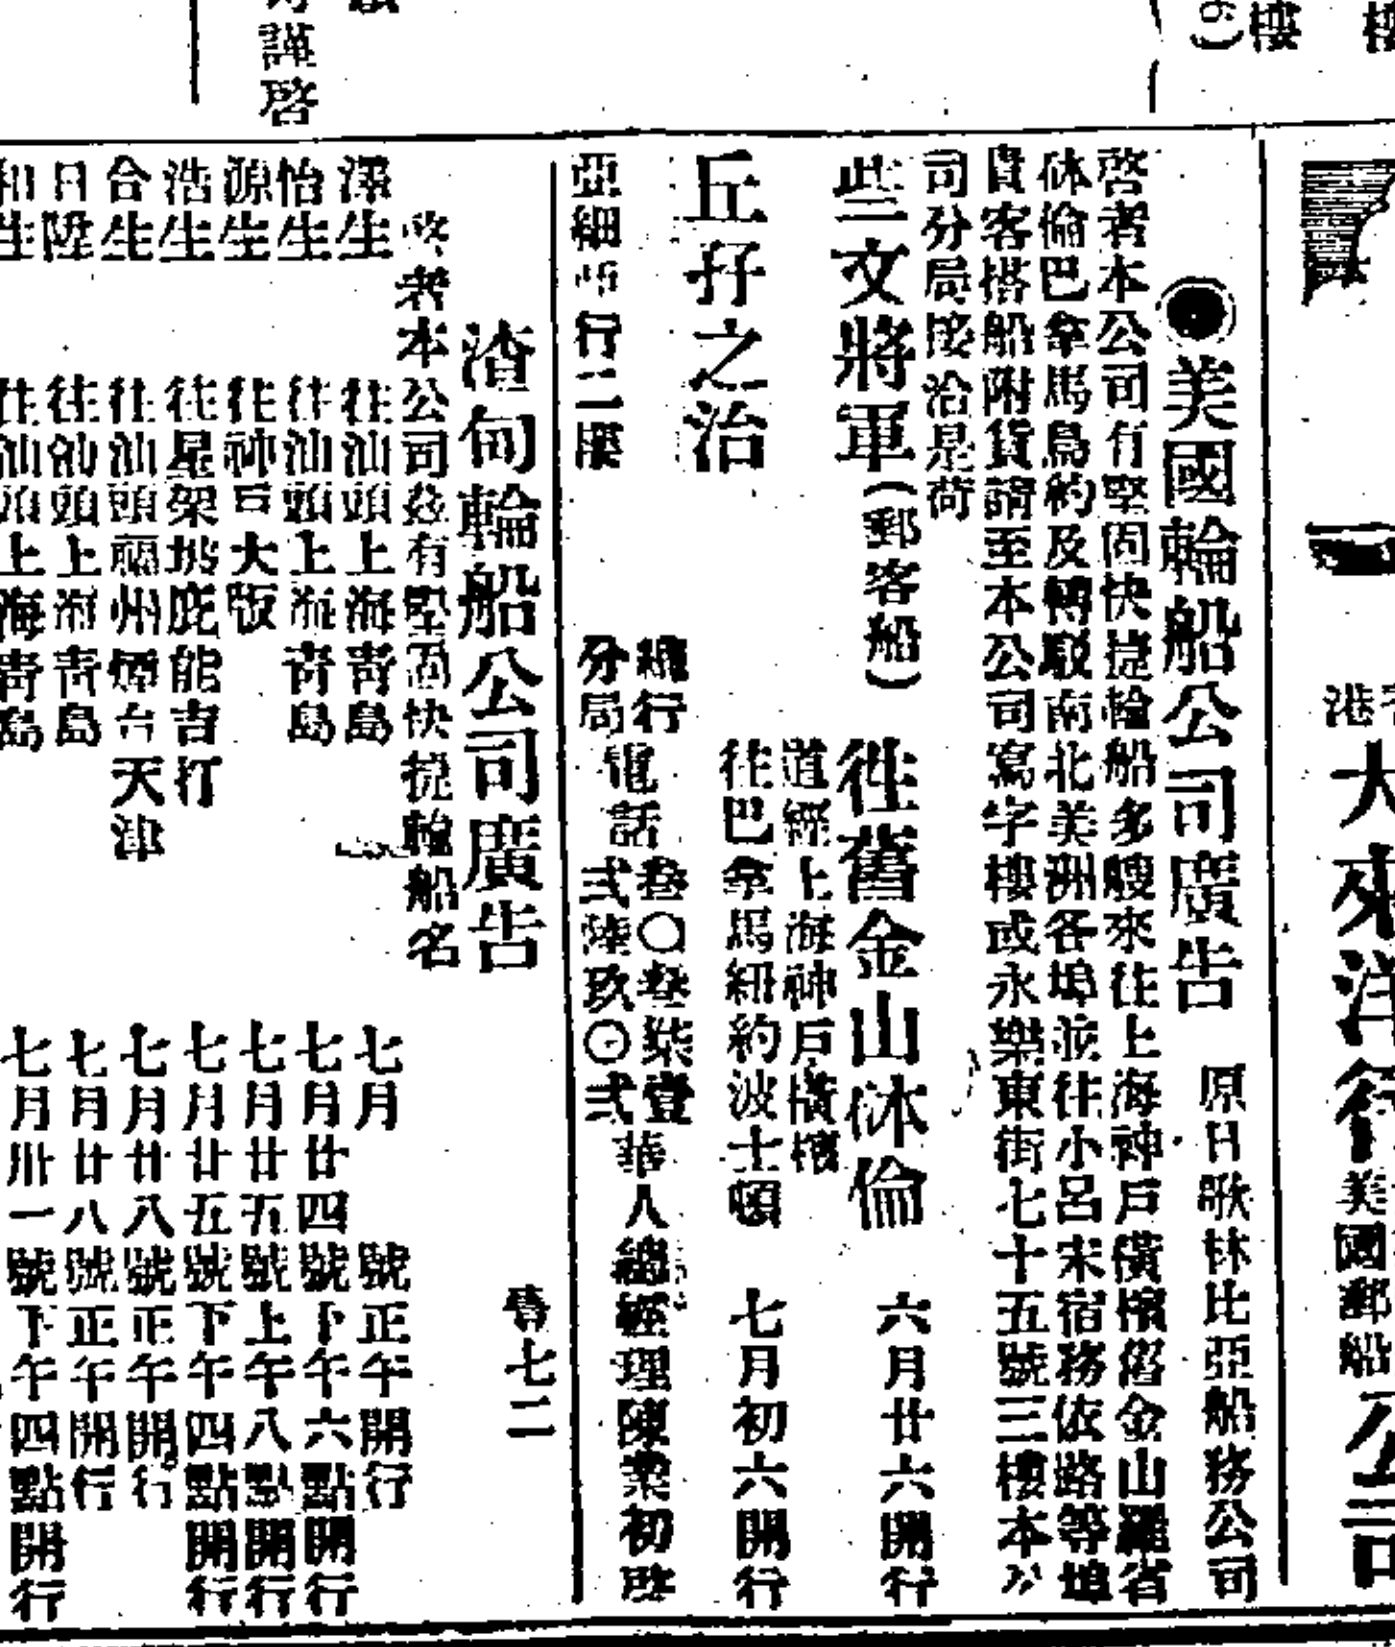 樓
謹啓
港
大來洋行
美國郵船
公司
●美國輪船公司廣告 原日歌林比亞船務公司
啓者本公司有堅固快捷輪船多艘來往上海神戶橫檳舊金山羅省
砵倫巴拿馬鳥約及轉駁南北美洲各埠並往小呂宋宿務依路等埠
貴客搭船附貨請至本公司寫字樓或永樂東街七十五號三樓本公
司分局接洽是荷
些文將軍(郵客船) 往舊金山砵倫 六月廿六開行
道經上海神戶橫檳
丘孖之治 往巴拿馬紐約波士頓 七月初六開行
亞細亞行二樓
總行 電話 叁〇叁柒壹
分局 電話 弍陸玖〇弍
華人總經理陳業初啓
渣甸輪船公司廣告 七二
啓者本公司茲有堅固快捷輪船名
澤生 往汕頭上海青島 七月 號正午開行
怡生 往汕頭上海青島 七月廿四號下午六點開行
源生 往神戶大版 七月廿五號上午八點開行
浩生 往星架坡庇能吉打 七月廿五號下午四點開行
合生 往汕頭福州煙台天津 七月廿八號正午開行
日陞 往汕頭上海青島 七月廿八號正午開行
和生 往汕頭上海青島 七月卅一號下午四點開行